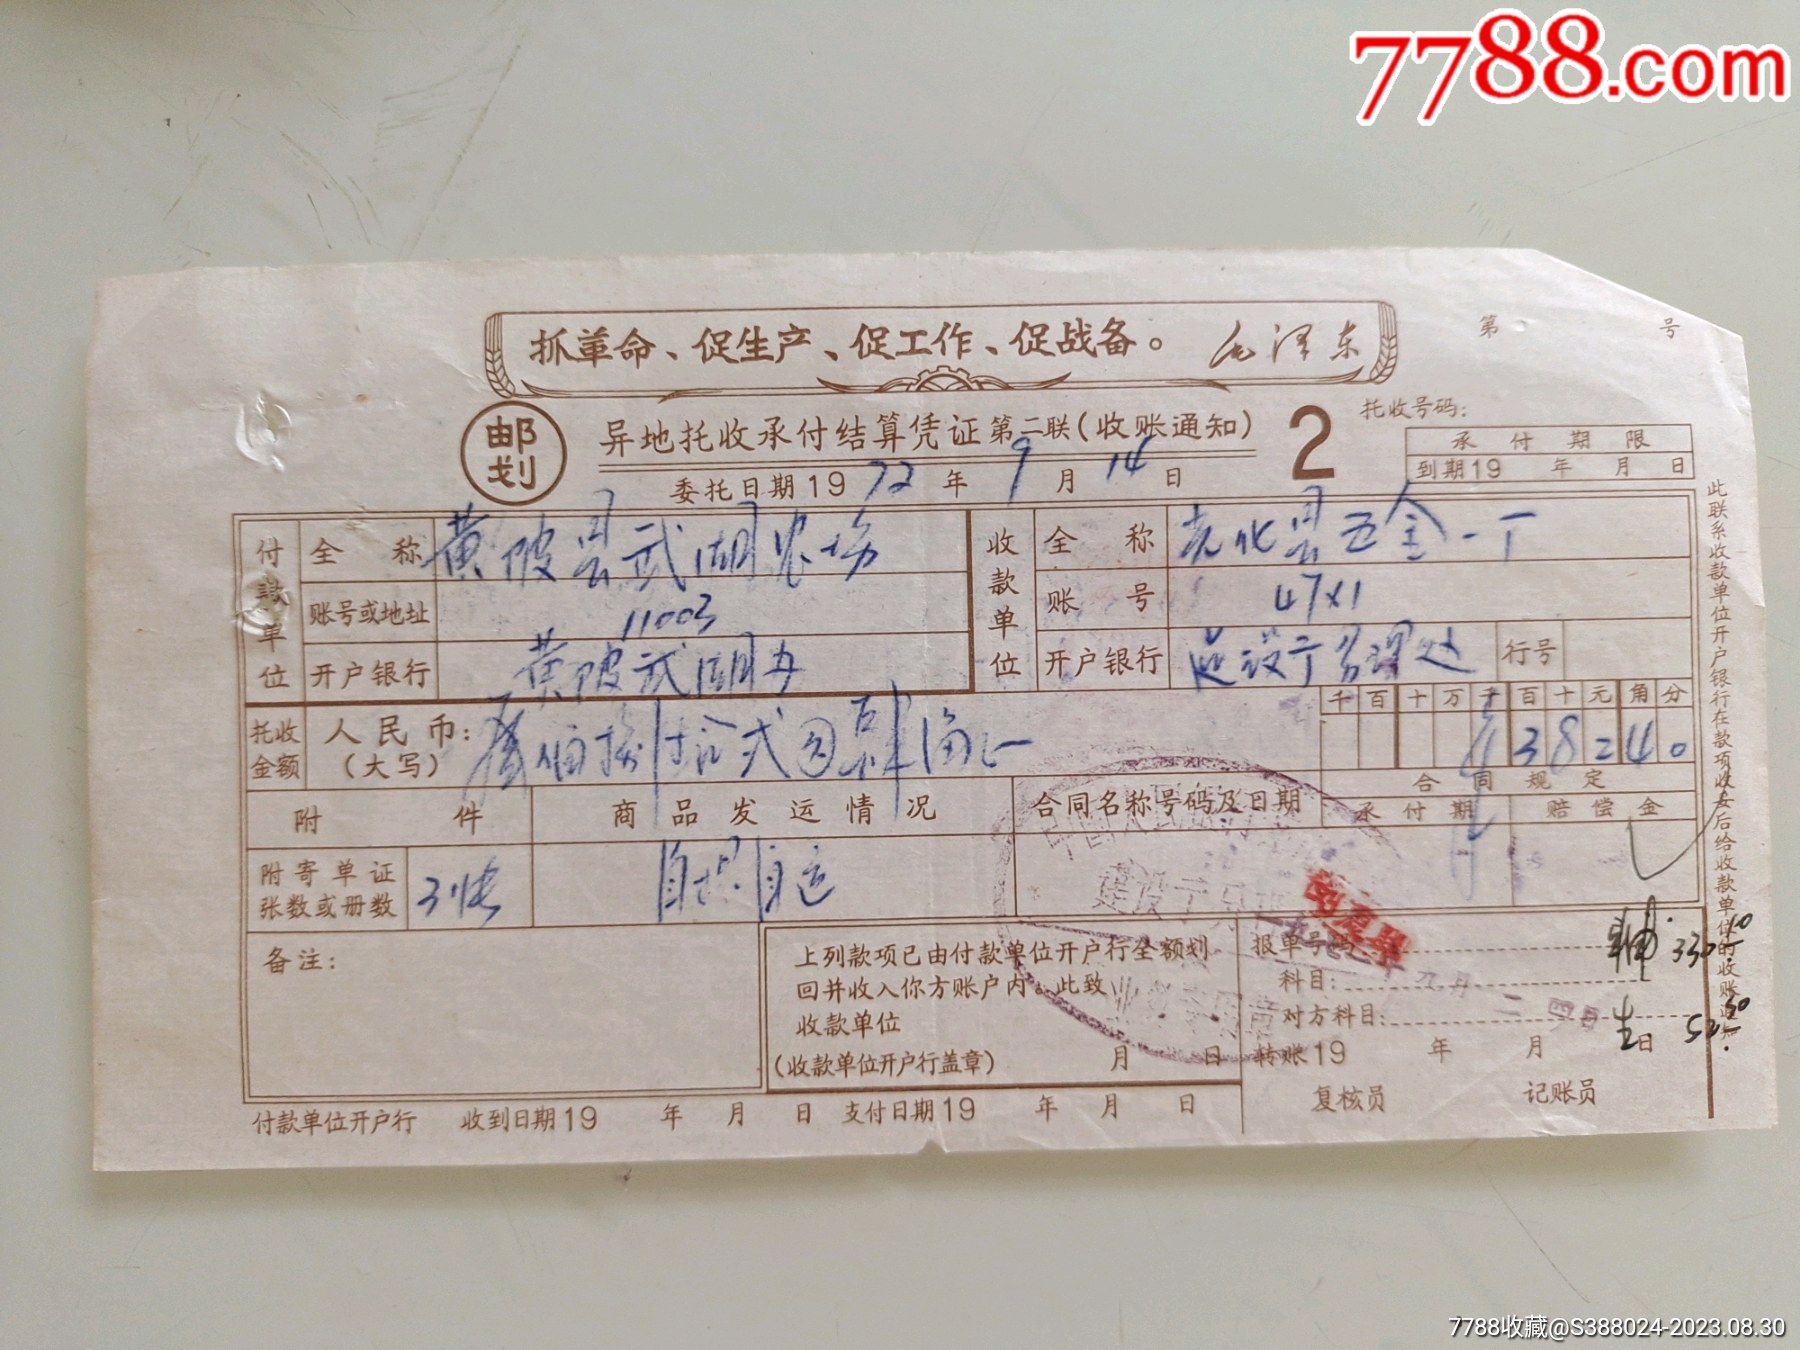 7788.com
抓革命、促生产、促工作、促战备。 毛泽东
第 号
邮划
异地托收承付结算凭证 第二联(收账通知) 2
托收号码:
承付期限
到期19 年 月 日
委托日期1972年9月14日
付款单位
全称 黄陂县武湖农场
账号或地址 11003
开户银行 黄陂武湖办
收款单位
全称 光化县五金一厂
账号 47×1
开户银行 行号
托收金额 人民币:(大写)
千百十万千百十元角分
38240
附件 商品发运情况 合同名称号码及日期 合同规定
承付期 赔偿金
附寄单证张数或册数 3张 自提自运
备注:
上列款项已由付款单位开户行全额划
回并收入你方账户内。此致
收款单位
(收款单位开户行盖章) 月 日
报单号码
科目:
对方科目:
转账19 年 月 日
复核员 记账员
付款单位开户行 收到日期19 年 月 日 支付日期19 年 月 日
此联系收款单位开户银行在款项收妥后给收款单位的收账通知
7788收藏@S388024-2023.08.30